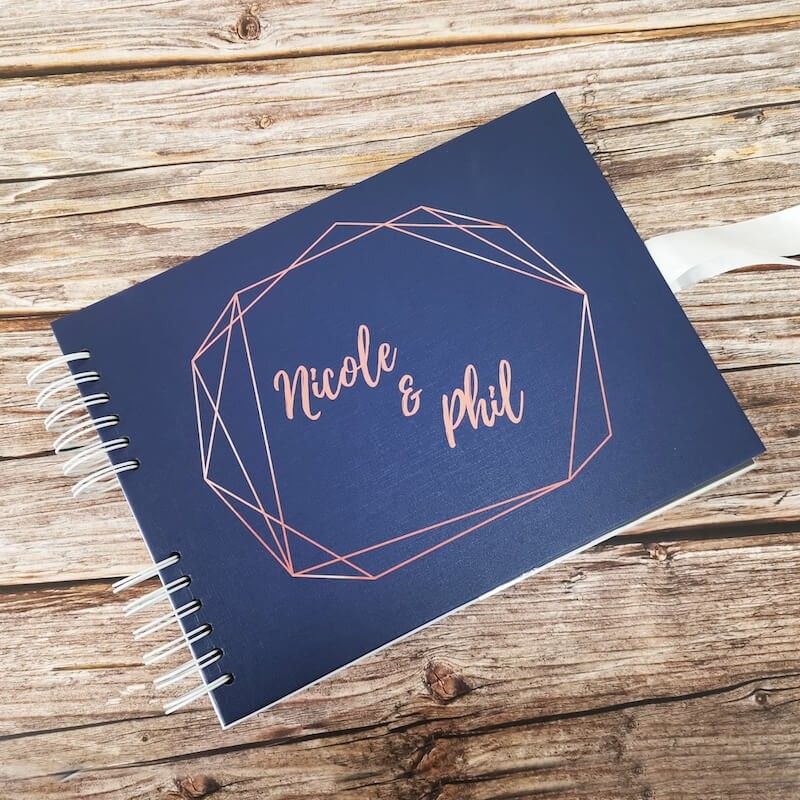 Nicole
&
Phil